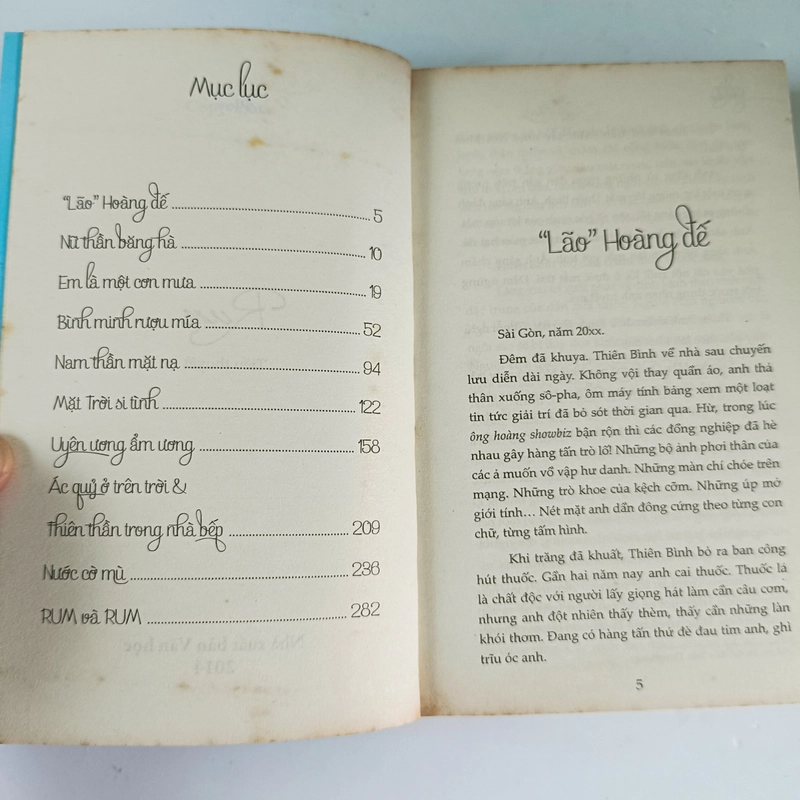 Mục lục
"Lão" Hoàng đế ........ 5
Nữ thần băng hà ........ 10
Em là một cơn mưa ........ 19
Bình minh rượu mía ........ 52
Nam thần mặt nạ ........ 94
Mặt Trời si tình ........ 122
Uyên ương ẩm ương ........ 158
Ác quỷ ở trên trời &
Thiên thần trong nhà bếp ........ 209
Nước cờ mù ........ 236
RUM và RUM ........ 282
Nhà xuất bản Văn học
2014
"Lão" Hoàng đế
Sài Gòn, năm 20xx.
Đêm đã khuya. Thiên Bình về nhà sau chuyến
lưu diễn dài ngày. Không vội thay quần áo, anh thả
thân xuống sô-pha, ôm máy tính bảng xem một loạt
tin tức giải trí đã bỏ sót thời gian qua. Hừ, trong lúc
ông hoàng showbiz bận rộn thì các đồng nghiệp đã hè
nhau gây hàng tấn trò lố! Những bộ ảnh phơi thân của
các ả muốn vồ vập hư danh. Những màn chí chóe trên
mạng. Những trò khoe của kệch cỡm. Những úp mở
giới tính... Nét mặt anh dần đông cứng theo từng con
chữ, từng tấm hình.
Khi trăng đã khuất, Thiên Bình bỏ ra ban công
hút thuốc. Gần hai năm nay anh cai thuốc. Thuốc lá
là chất độc với người lấy giọng hát làm cần câu cơm,
nhưng anh đột nhiên thấy thèm, thấy cần những làn
khói thơm. Đang có hàng tấn thứ đè đau tim anh, ghì
trĩu óc anh.
5